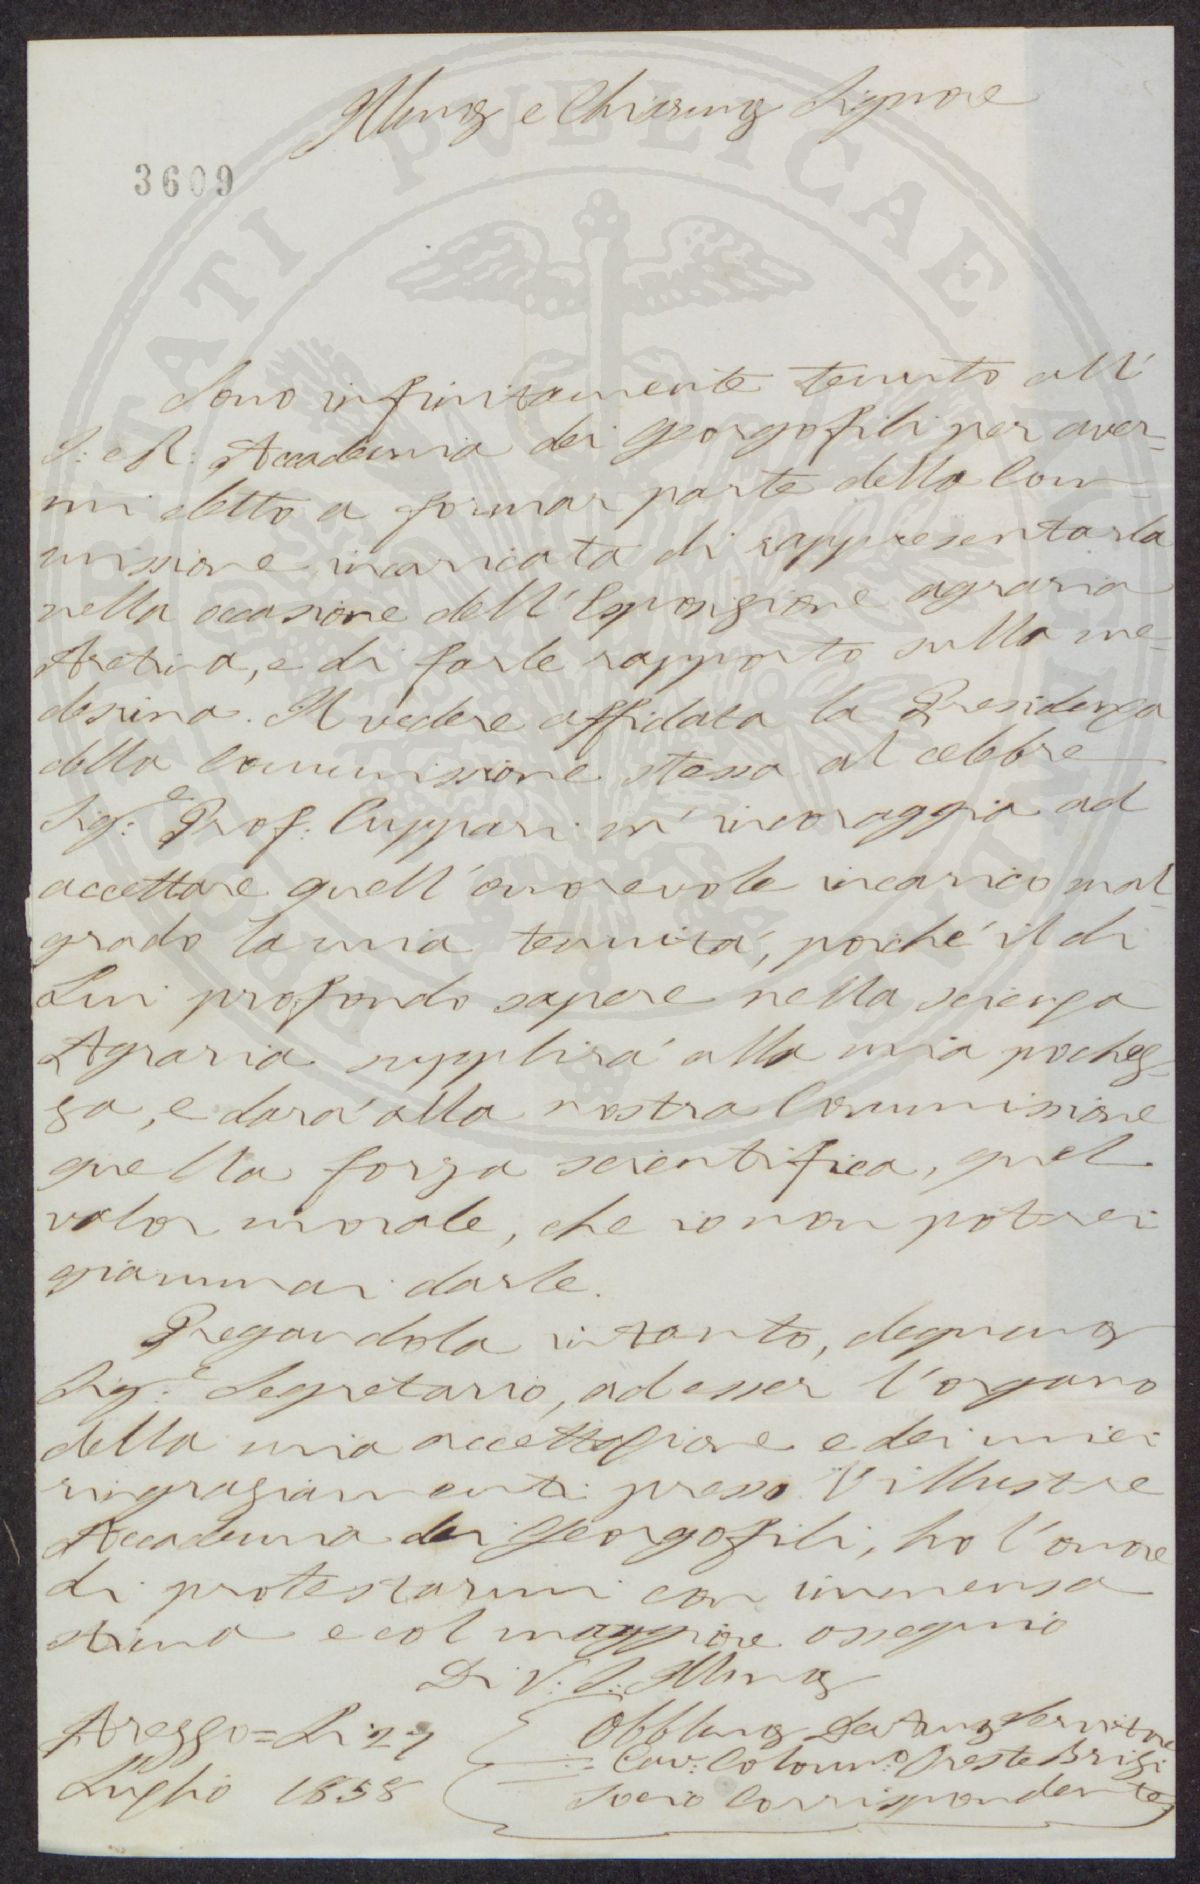 Illmo e Chiarmo Signore
3609
Sono infinitamente tenuto all'
I: e R: Accademia dei Georgofili per aver-
mi eletto a formar parte della Com-
missione incaricata di rappresentarla
nella occasione dell'Esposizione agraria
Aretina, e di farle rapporto sulla me-
desima. Il vedere affidata la Presidenza
della Commissione stessa al celebre
Sig:e Prof: Cuppari m'incoraggia ad
accettare quell'onorevole incarico mal-
grado la mia tenuità, poiché il di
Lui profondo sapere nella scienza
Agraria supplirà alla mia pochez-
za, e darà alla nostra Commissione
quella forza scientifica, quel
valor morale, che io non potrei
giammai darle.
Pregandola intanto, degnmo
Sig:e Segretario, ad esser l'organo
della mia accettazione e dei miei
ringraziamenti presso l'illustre
Accademia dei Georgofili, ho l'onore
di protestarmi con immensa
stima e col maggiore ossequio
Di V: S: Illma
Arezzo = Li 27
Luglio 1858
Obblmo Devmo Servitore
Cav: Colonno: Oreste Brizi
Socio Corrispondente
PUBLICAE